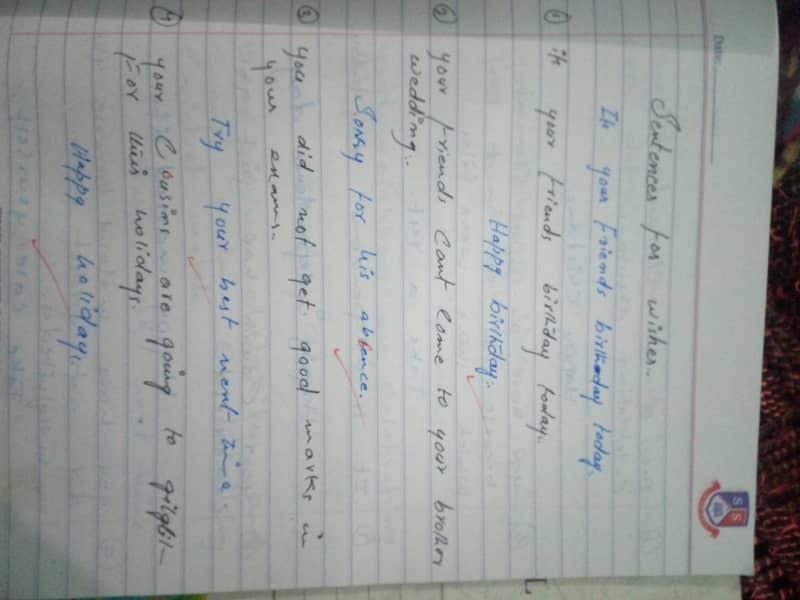 Date:
Sentences for wishes..
Its your Friends birthday today.
① its your friends birthday today..
Happy birthday..
② your friends cant come to your brother
wedding..
Sorry for his absence.
③ you did not get good marks in
your exams.
Try your best nent time.
④ your Cousins are going to gilgit
For their holidays.
Happy holiday..
S S